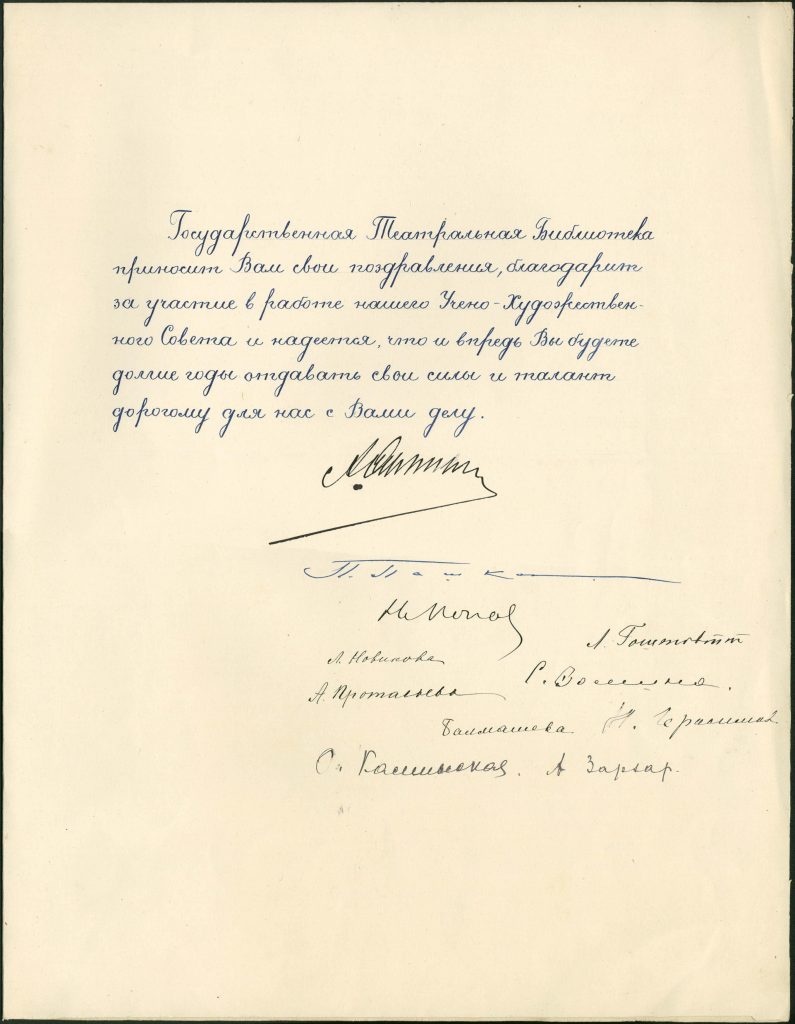 Государственная Театральная Библиотека
приносит Вам свои поздравления, благодарит
за участие в работе нашего Учено-Художествен-
ного Совета и надеется, что и впредь Вы будете
долгие годы отдавать свои силы и талант
дорогому для нас с Вами делу.
П. Пашк
Л. Новикова
А. Протасьева
Балмашева
А Зарзар.